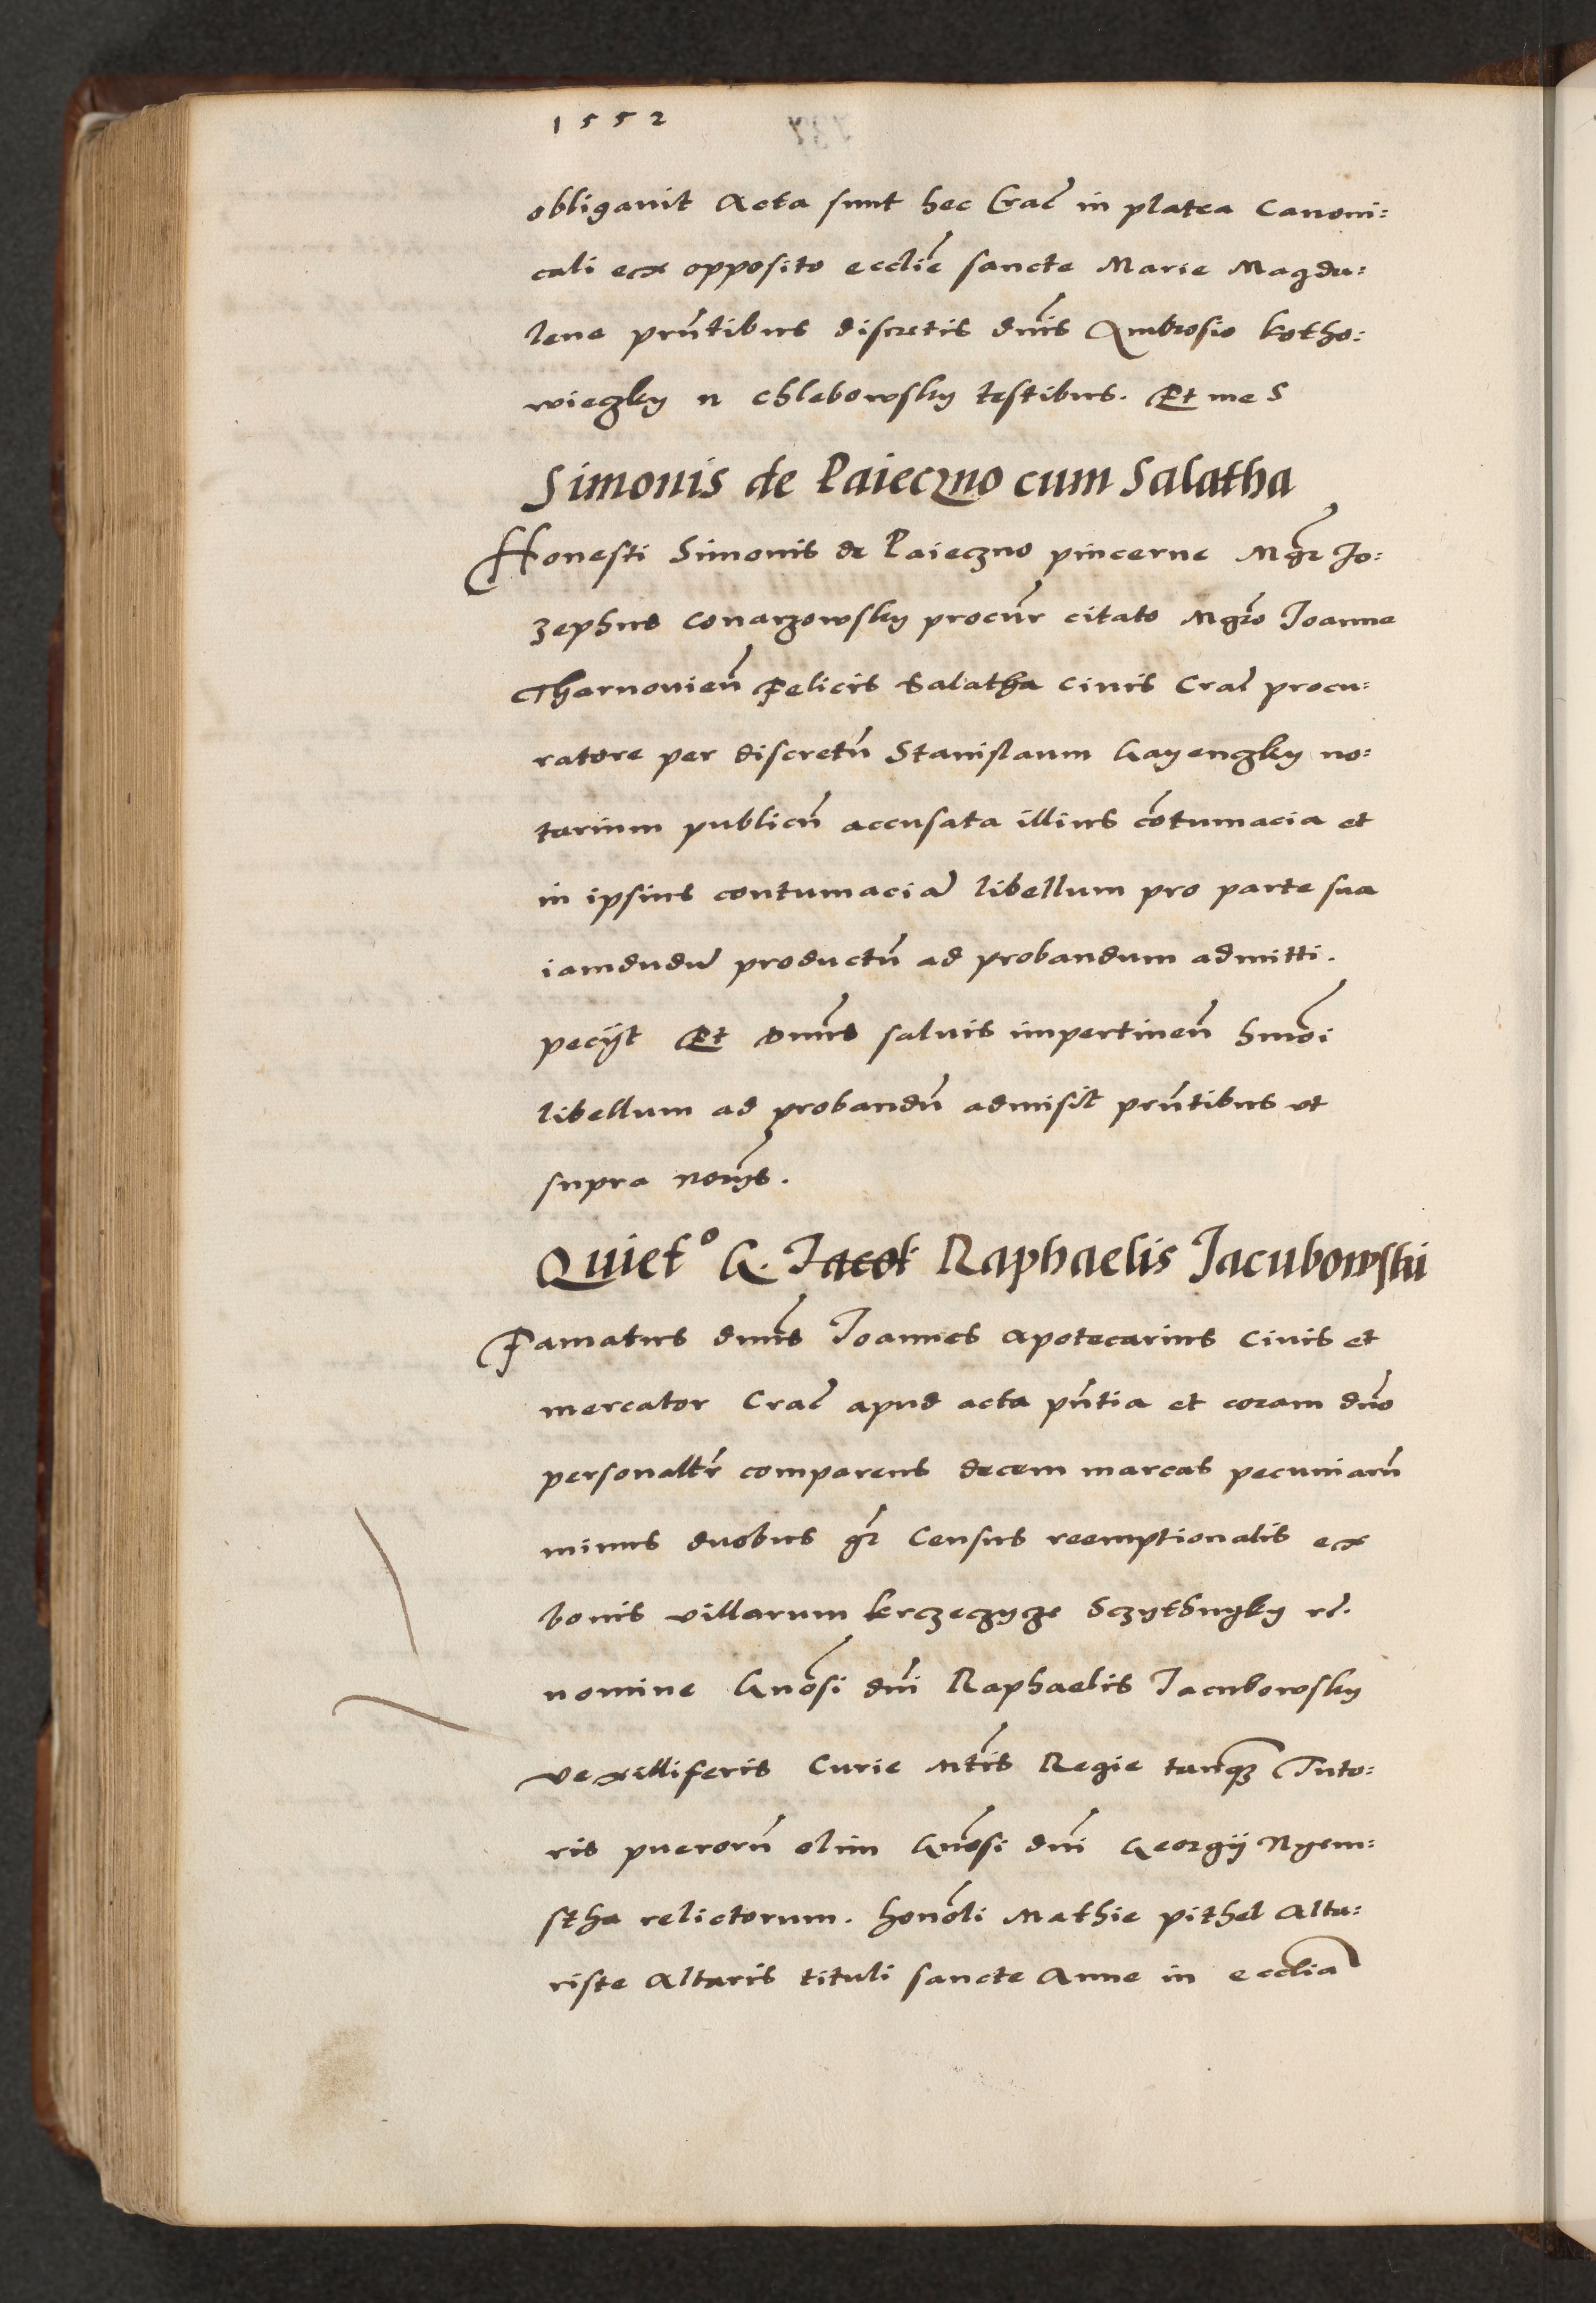 1552
obligavit Acta sunt hec Crac̄ in platea Canoni:
cali ex opposito ecclīe sancte Marie Magda:
lene pn̄tibus discretis dnīs Ambrosio kotho:
wiegky n chlebowsky testibus. Et me S
Simonis de Paieczno cum Salatha
Honesti Simonis de Paieczno pincerne Mgr̄ Jo:
zephus Conarzowsky procūr citato Mgrō Joanne
Tharnovieñ Felicis Salatha Civis Crac̄ procu:
ratore per discretū Stanislaum Gayengky no:
tarium publicū accusata illius cōtumacia et
in ipsius contumaciā libellum pro parte sua
iamdudū productū ad probandum admitti.
peciit Et Dnūs salvis impertineñ hmōi
libellum ad probandū admisit pn̄tibus ut
supra nomīs.
Quietᵒ G. Jacob Raphaelis Jacubowski
Famatus dnūs Joannes Apotecarius Civis et
mercator Crac̄ apud acta pn̄tia et coram dnō
personalitr̄ comparens decem marcas pecuniarū
minus duobus gr̄ Census reemptionalis ex
bonis villarum
nomine Gnōsi dnī Raphaelis Jacubowsky
vexilliferis Curie Mtīs Regie tanq̄ Tuto:
ris puerorū olim Gnōsi dnī Georgii Nyem:
stha relictorum. honōli Mathie pithel Alta:
riste Altaris tituli sancte Anne in ecclīa